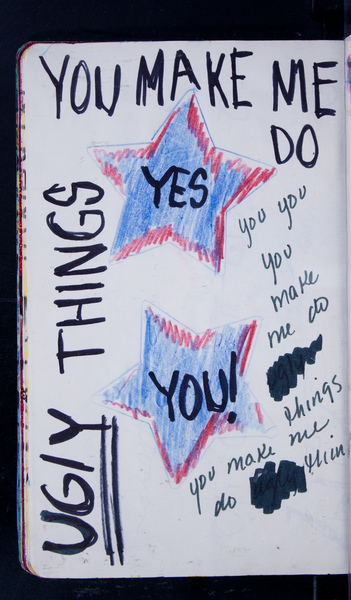 YOU MAKE ME
DO
UGLY THINGS
YES
YOU!
you you
you
make
me do
things
you make me
do thin